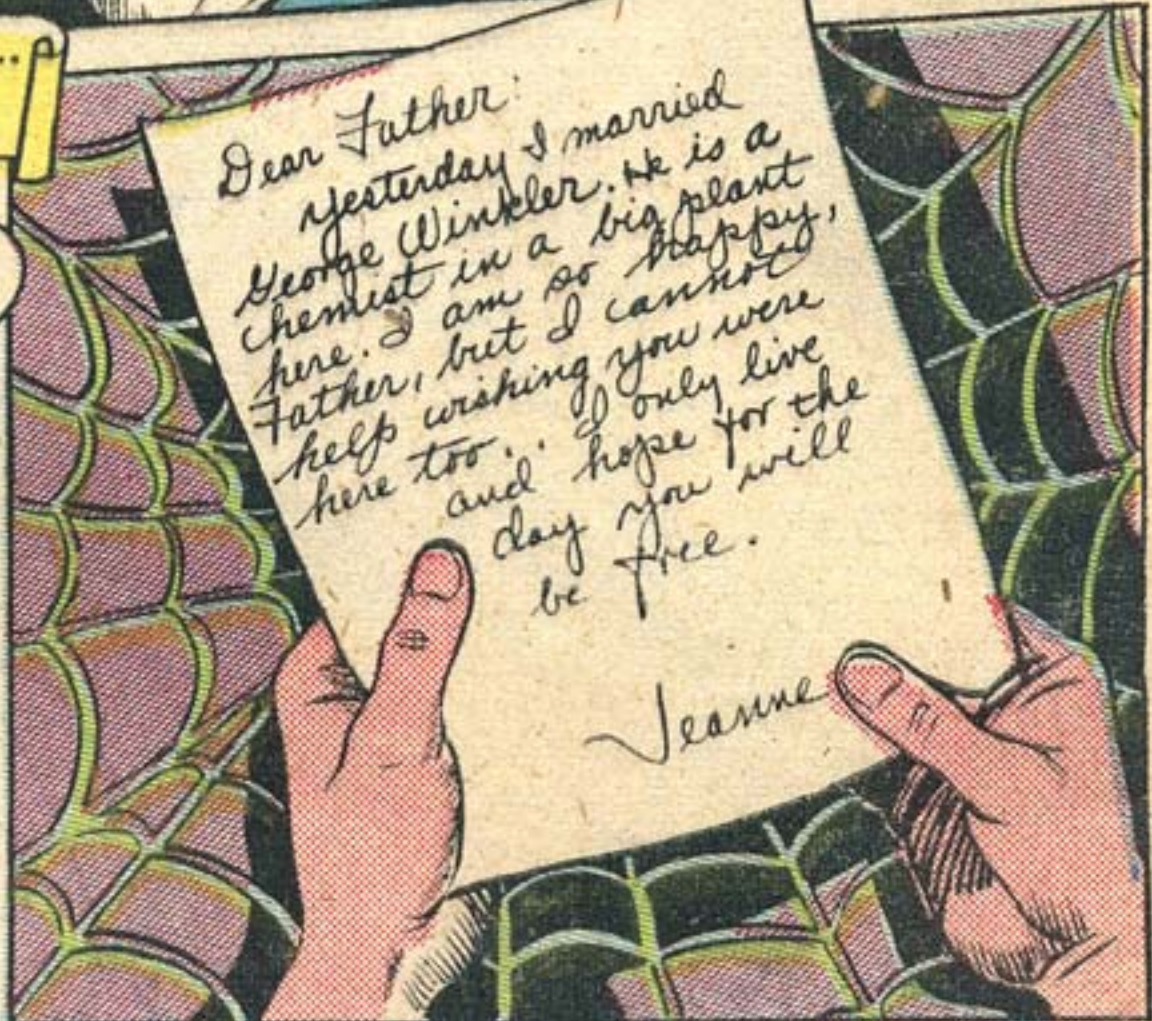 ..
Dear Father:
yesterday I married
George Winkler. He is a
chemist in a big plant
here. I am so happy,
Father, but I cannot
help wishing you were
here too... I only live
and hope for the
day you will
be free.
Jeanne